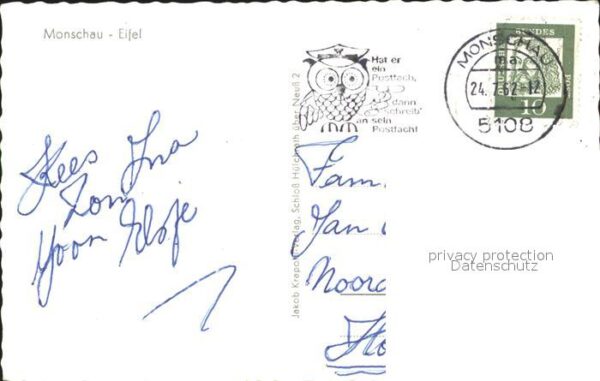 Monschau - Eifel
Hat er
ein
Postfach,
dann
schreib'
an sein
Postfach!
MONSCHAU
ma
24.7.62-12
5108
DEUTSCHE BUNDESPOST
10
Jakob Krapohl-Verlag, Schloß Hülchrath über Neuß 2
Kees Ina
Tom
Yoon Elsje
Fam.
Jan
Noord
Ho
privacy protection
Datenschutz